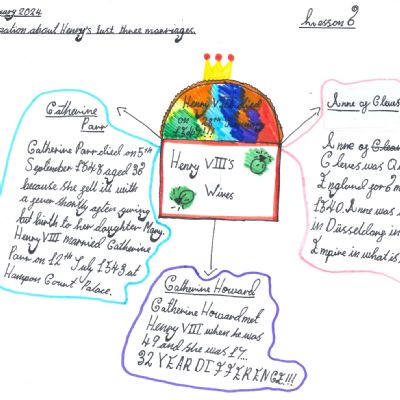 uary 2024
Lesson 2
ation about Henry's last three marriages.
Henry VIII died
on
Henry VIII's
Wives
Catherine
Parr
Catherine Parr died on 5th
September 1548 aged 38
because she fell ill with
a fever shortly after giving
but birth to her daughter Mary.
Henry VIII married Catherine
Parr on 12th July 1543 at
Hampon Court Palace.
Anne of Cleves
Anne of Cleves
Cleves was Qu
England for 6 m
1540. Anne was
in Düsseldorf in
Empire in what is
Catherine Howard
Catherine Howard met
Henry VIII when he was
49 and she was 17...
32 YEAR DIFFERENCE!!!